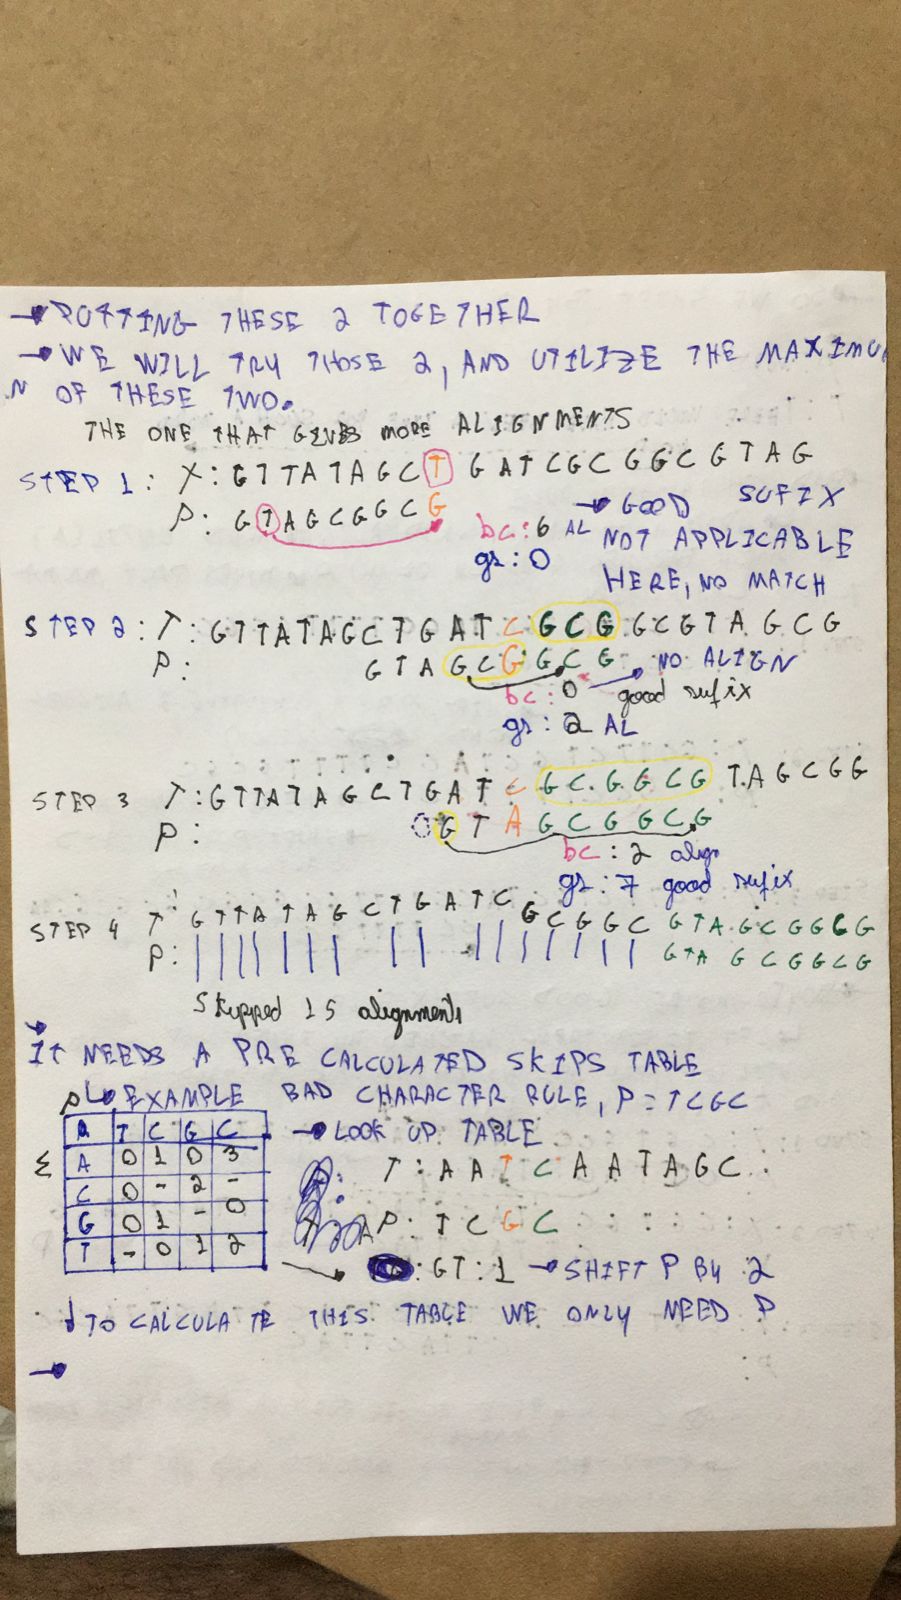 → POTTING THESE 2 TOGETHER
→ WE WILL TRY THOSE 2, AND UTILIZE THE MAXIMU
N OF THESE TWO.
THE ONE THAT GIVES MORE ALIGNMENTS
STEP 1: T: GTTATAGCT GATCGCGGCGTAG
P: GTAGCGGCG
bc: 6 AL
gs: 0
→ GOOD SUFIX
NOT APPLICABLE
HERE, NO MATCH
STEP 2: T: GTTATAGCTGATCGCGGCGTAGCG
P: GTAGCGGCG
bc: 0 → NO ALIGN
gs: 2 AL
good sufix
STEP 3 T: GTTATAGCTGATCGCGGCGTAGCGG
P: GTAGCGGCG
bc: 2 align
gs: 7 good sufix
STEP 4 T: GTTATAGCTGATCGCGGCGTAGCGGCG
P: GTAGCGGCG
Skipped 15 alignments
→
IT NEEDS A PRE CALCULATED SKIPS TABLE
↳ EXAMPLE BAD CHARACTER RULE, P=TCGC
P
T C G C
Σ
A 0 1 0 3
C 0 - 2 -
G 0 1 - 0
T - 0 1 2
→ LOOK UP TABLE
T: AATCAATAGC
P: TCGC
: GT: 1 → SHIFT P By 2
↓ TO CALCULATE THIS TABLE WE ONLY NEED P
→